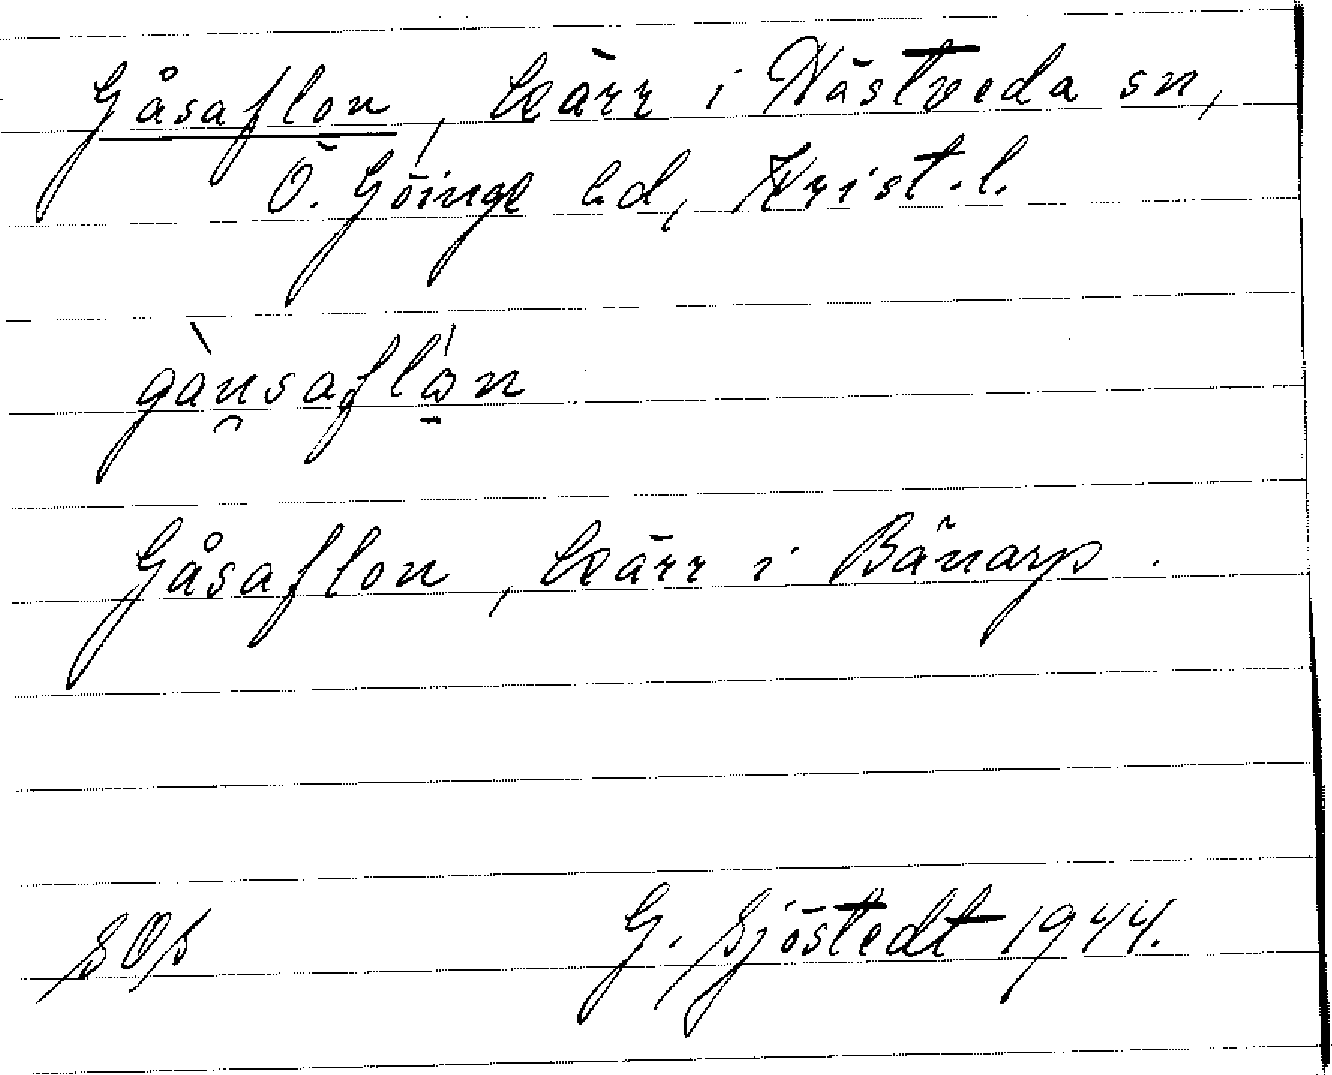 Gåsaflon, kärr i Hästveda sn,
Ö. Göinge hd, Krist. l.
gànsaflón
Gåsaflon, kärr i Bänarp.
G. Sjöstedt 1944.